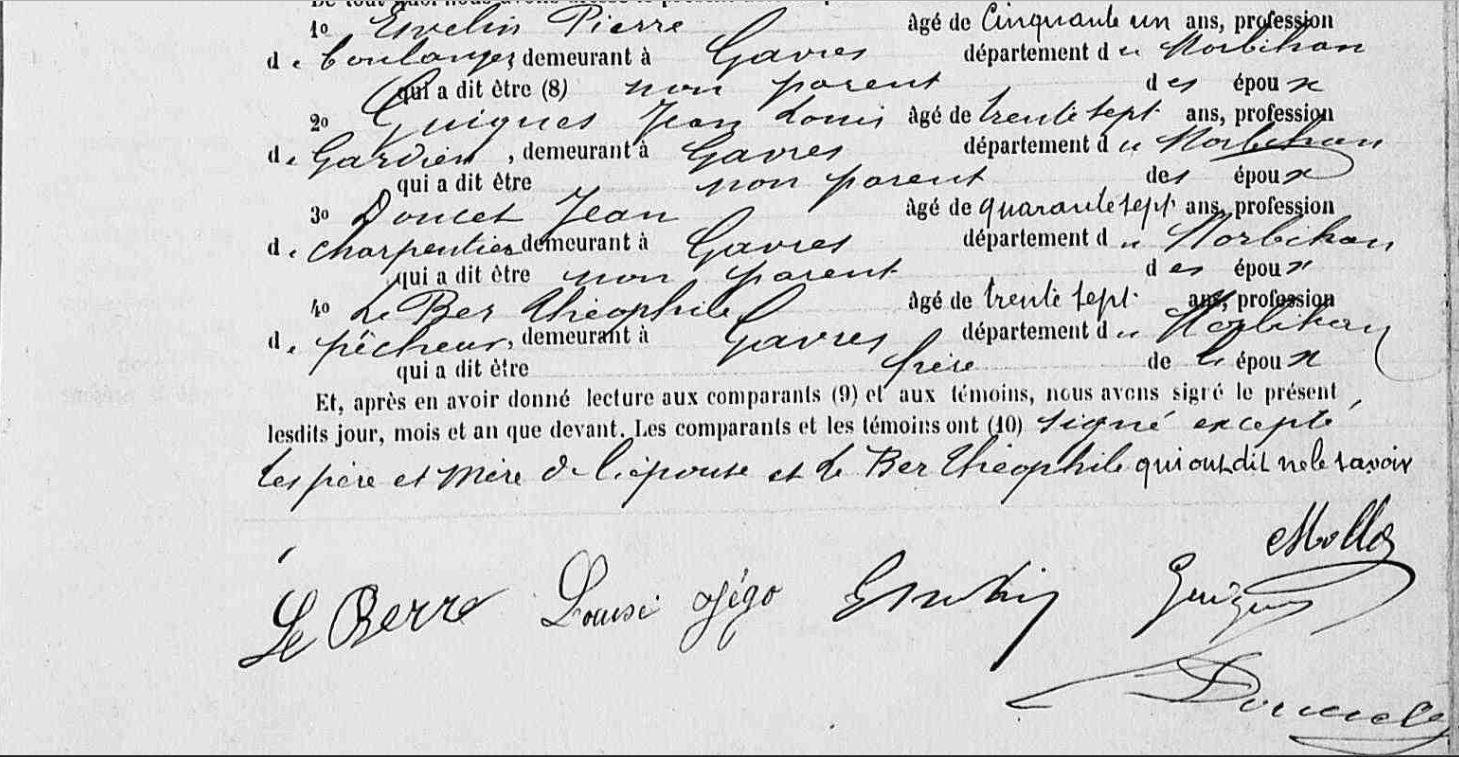 1o Esvelin Pierre âgé de Cinquante un ans, profession
de boulanger demeurant à Gavres département du Morbihan
qui a dit être (8) non parent des époux
2o Guigues Jean Louis âgé de trente sept ans, profession
de Gardien, demeurant à Gavres département du Morbihan
qui a dit être non parent des époux
3o Doucet Jean âgé de quarante sept ans, profession
de charpentier demeurant à Gavres département du Morbihan
qui a dit être non parent des époux
4o Le Ber Théophile âgé de trente sept ans, profession
de pêcheur, demeurant à Gavres département du Morbihan
qui a dit être frère de l' époux
Et, après en avoir donné lecture aux comparants (9) et aux témoins, nous avons signé le présent
lesdits jour, mois et an que devant. Les comparants et les témoins ont (10) signé excepté
les père et mère de l'épouse et Le Ber Théophile qui ont dit ne le savoir
Le Berre Louise Jégo Guigues
Doucet